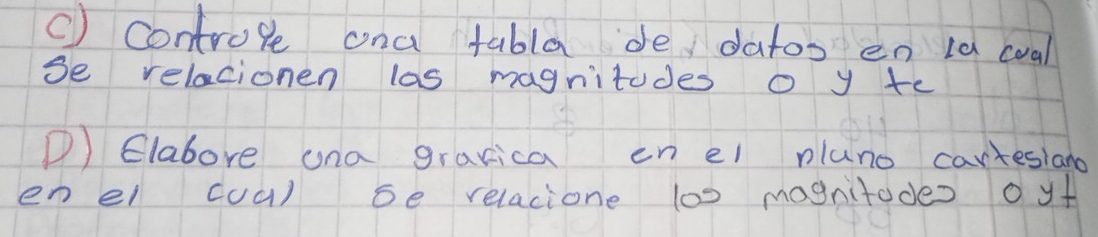 C) Controye una tabla de datos en la cual
se relacionen las magnitudes o y te
D) Elabore una grafica en el plano cartesiano
en el cual se relacione los magnitudes o y t